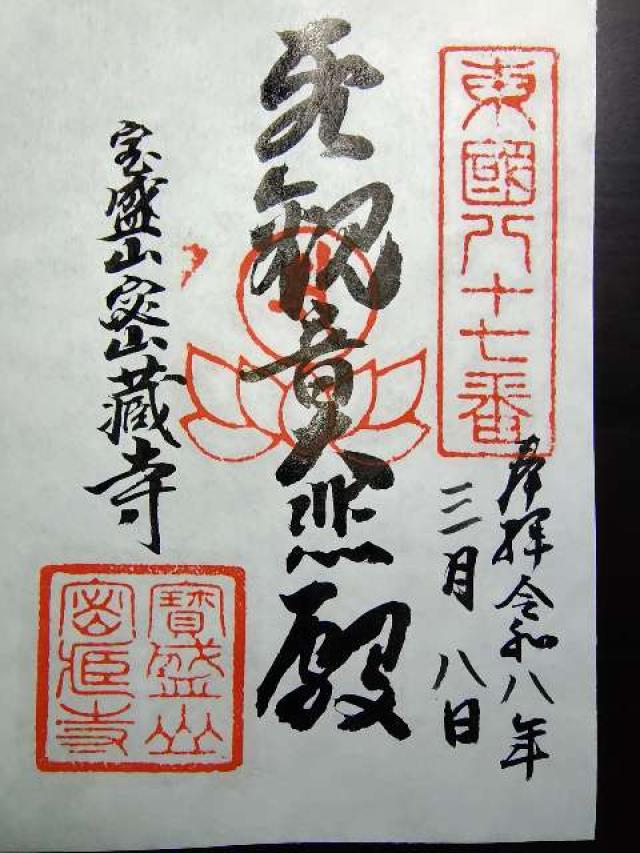 東國八十七番
奉拝令和八年
三月八日
聖観音大悲殿
宝盛山密蔵寺
寶盛山
密蔵寺